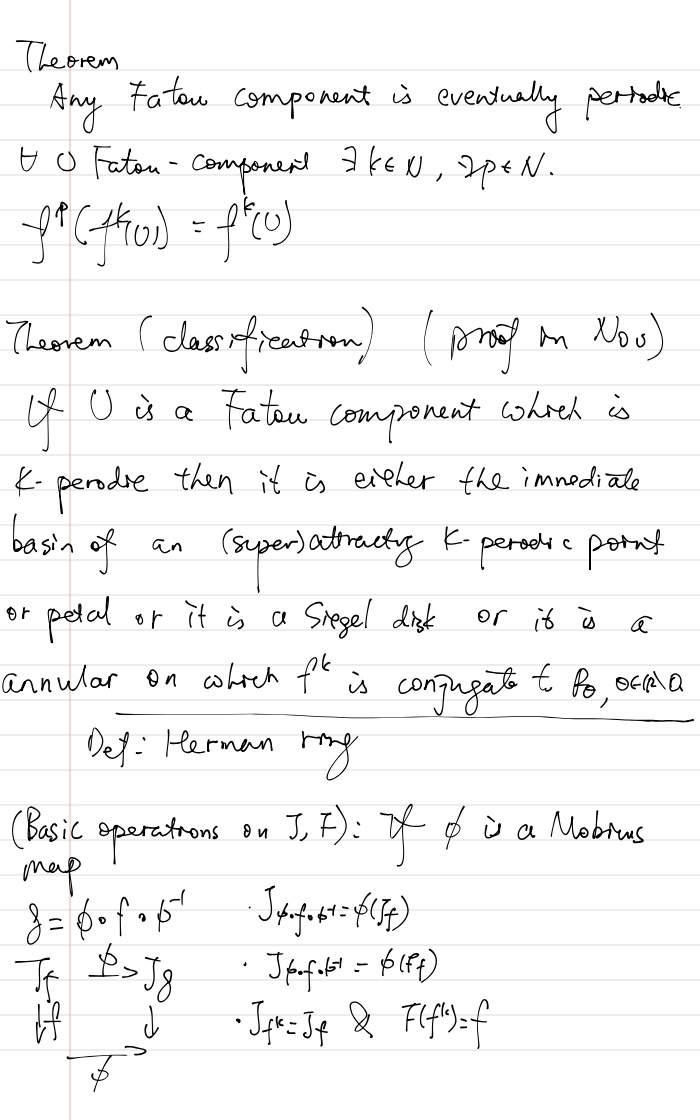 Theorem
Any Fatou component is eventually periodic
∀ U Fatou-component ∃ k∈N, ∃p∈N.
f^p(f^k(U)) = f^k(U)
Theorem (classification) (proof in Nov)
If U is a Fatou component which is
K-perodic then it is either the immediate
basin of an (super)attractg K-perodic point
or petal or it is a Siegel disk or it is a
annular on which f^k is conjugate to R_θ, θ∈R\Q
Def: Herman ring
(Basic operations on J, F): If φ is a Mobius
map
g = φ∘f∘φ^-1 · J_φ∘f∘φ^-1 = φ(J_f)
J_f φ> J_g · J_φ∘f∘φ^-1 = φ(F_f)
↓f ↓ · J_f^k = J_f & F(f^k)=f
→
φ